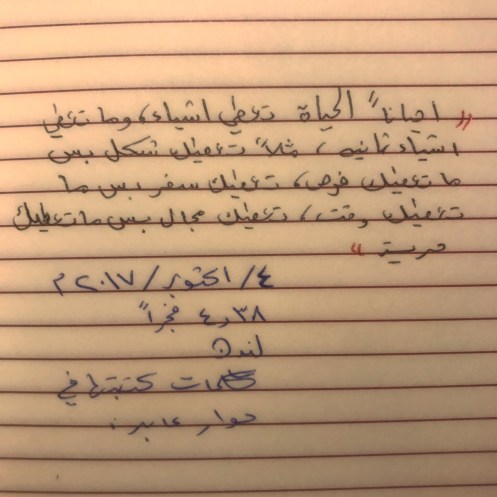 " احياناً الحياة تعطي اشياء، وما تعطي
اشياء ثانيه، مثلاً تعطيك شكل بس
ما تعطيك فرص، تعطيك سفر بس ما
تعطيك وقت، تعطيك مجال بس ما تعطيك
حرية "
٤/اكتوبر/٢٠١٧م
٤٫٣٨ فجراً
لندن
كلمات كتبتها في
حوار عابر.